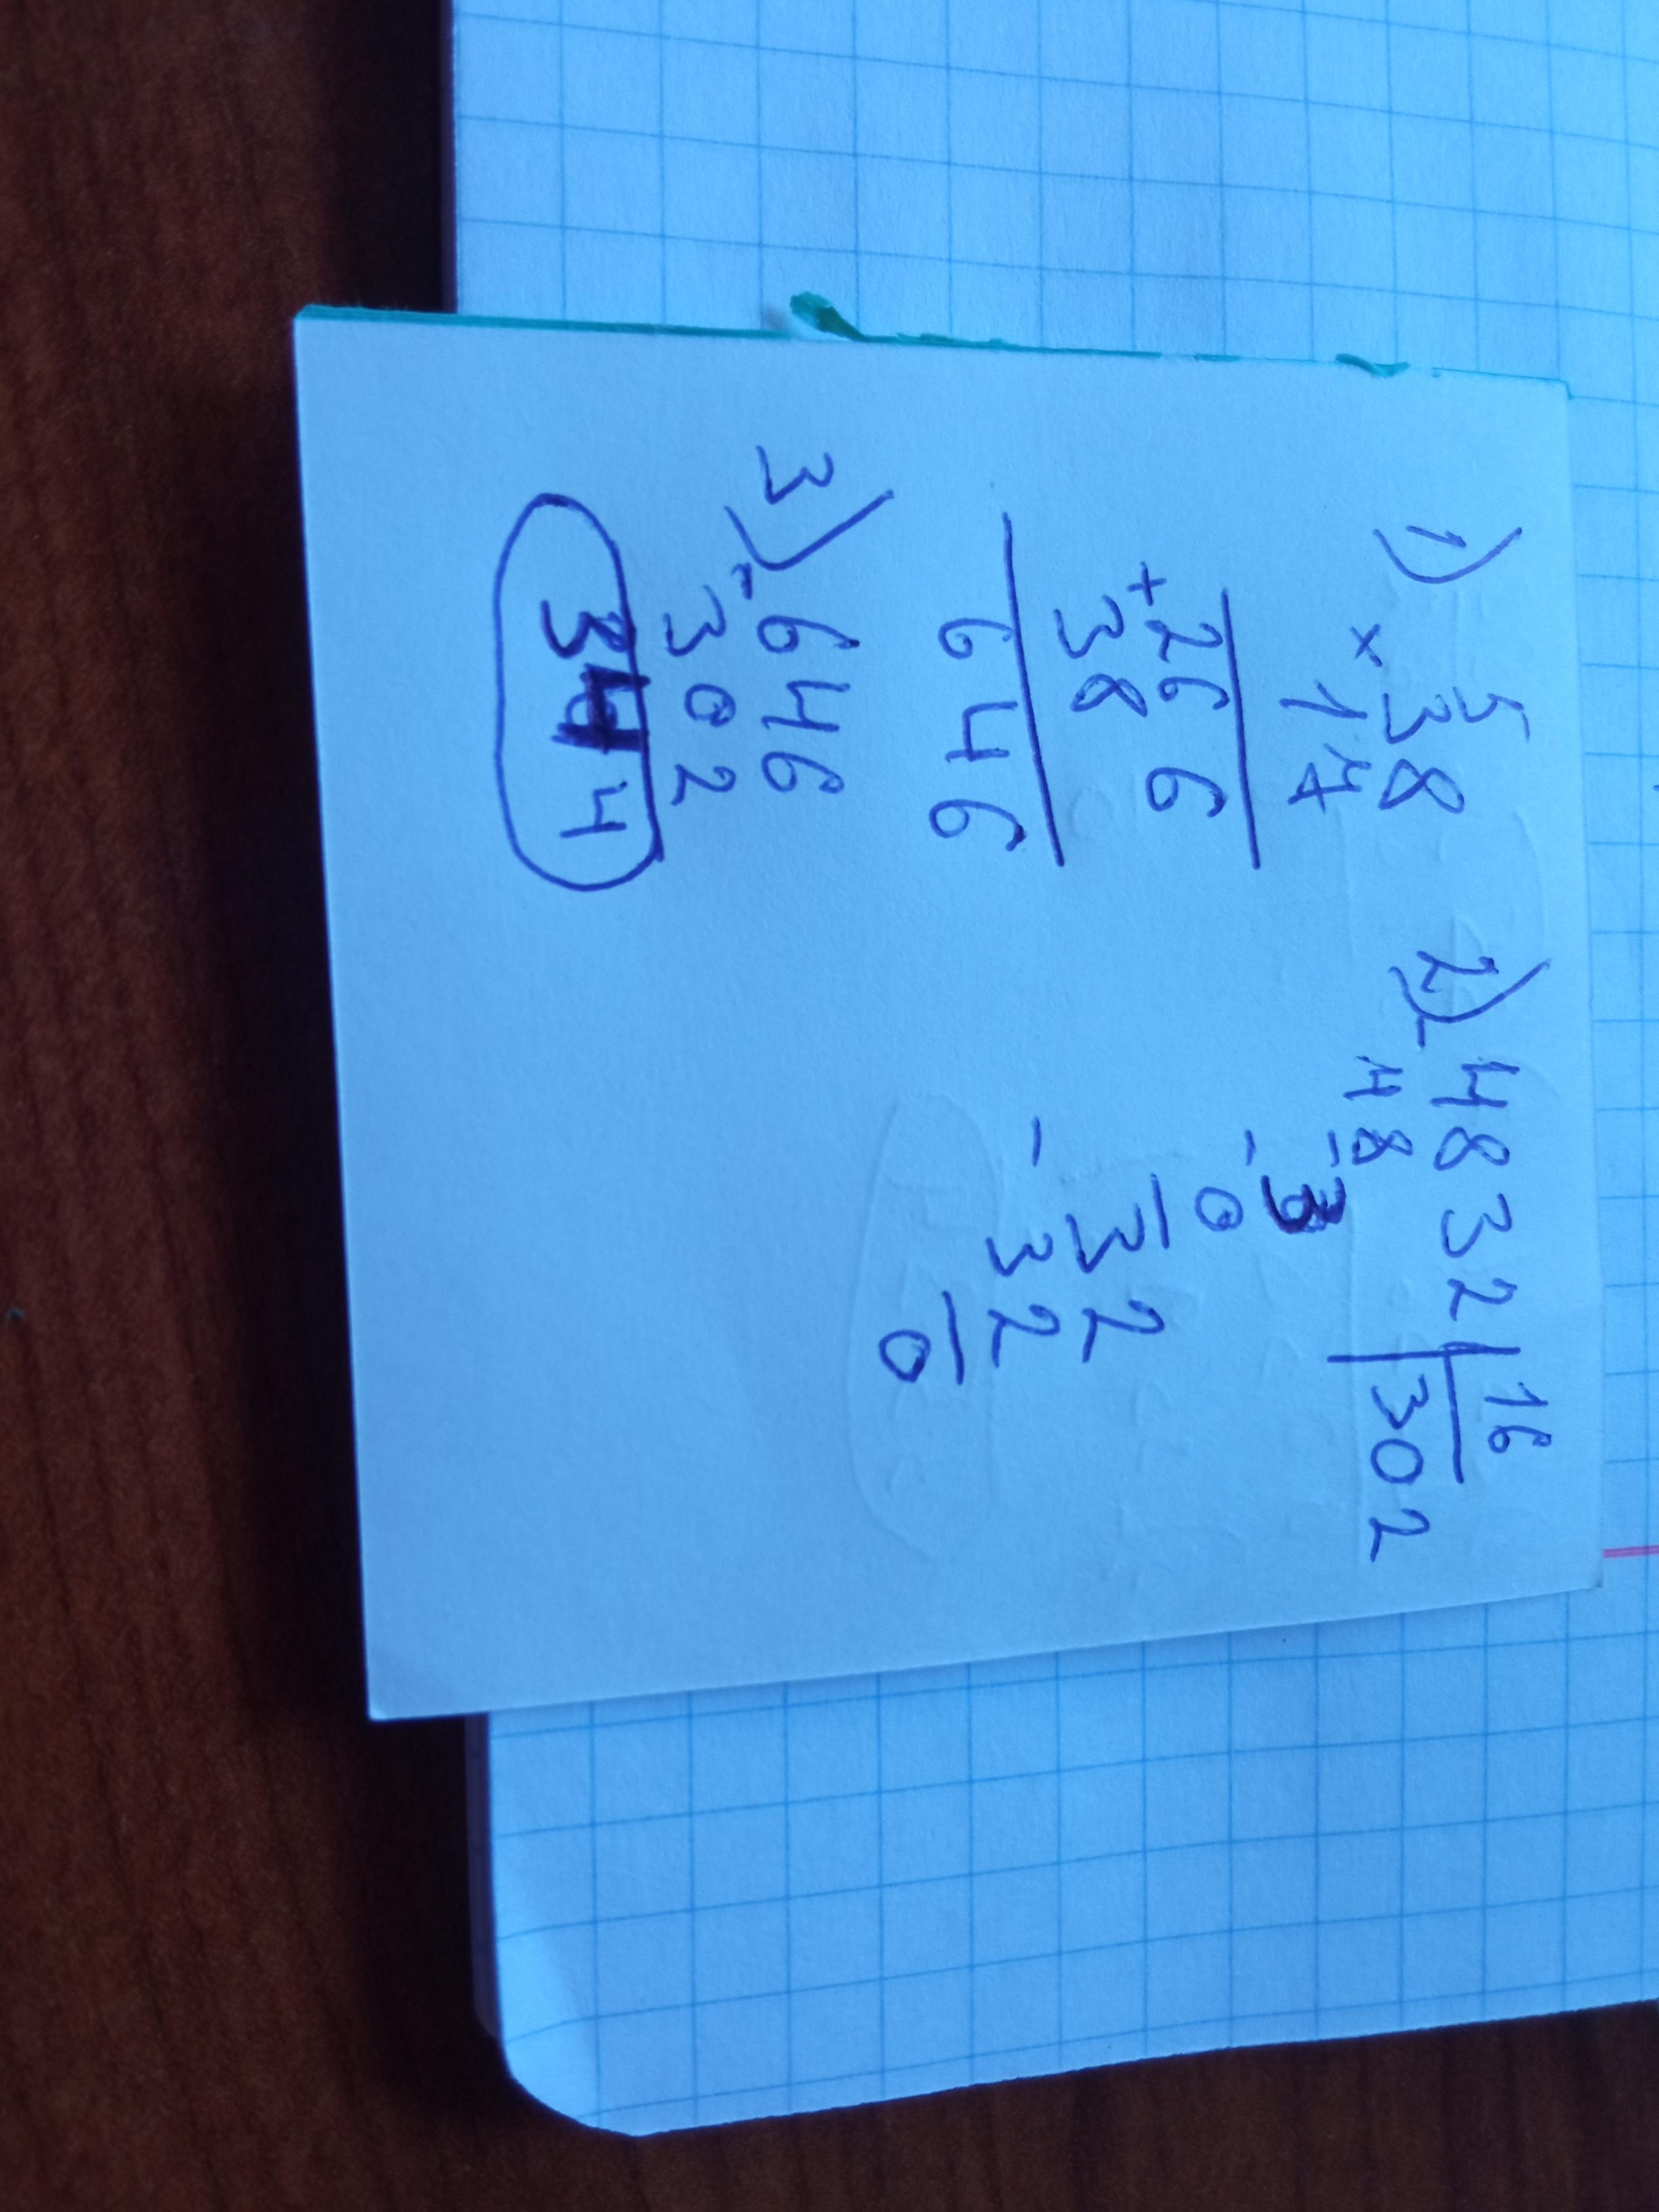 1) 5
38
× 17
266
+ 38
646
2) - 4832 | 16
48 302
- 3
- 0
32
- 32
0
3) - 646
302
344